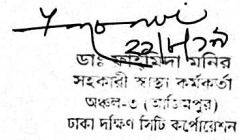 ২২/৮/১৯
ডাঃ ফাহমিদা মনির
সহকারী স্বাস্থ্য কর্মকর্তা
অঞ্চল-৩ (আজিমপুর)
ঢাকা দক্ষিণ সিটি কর্পোরেশন